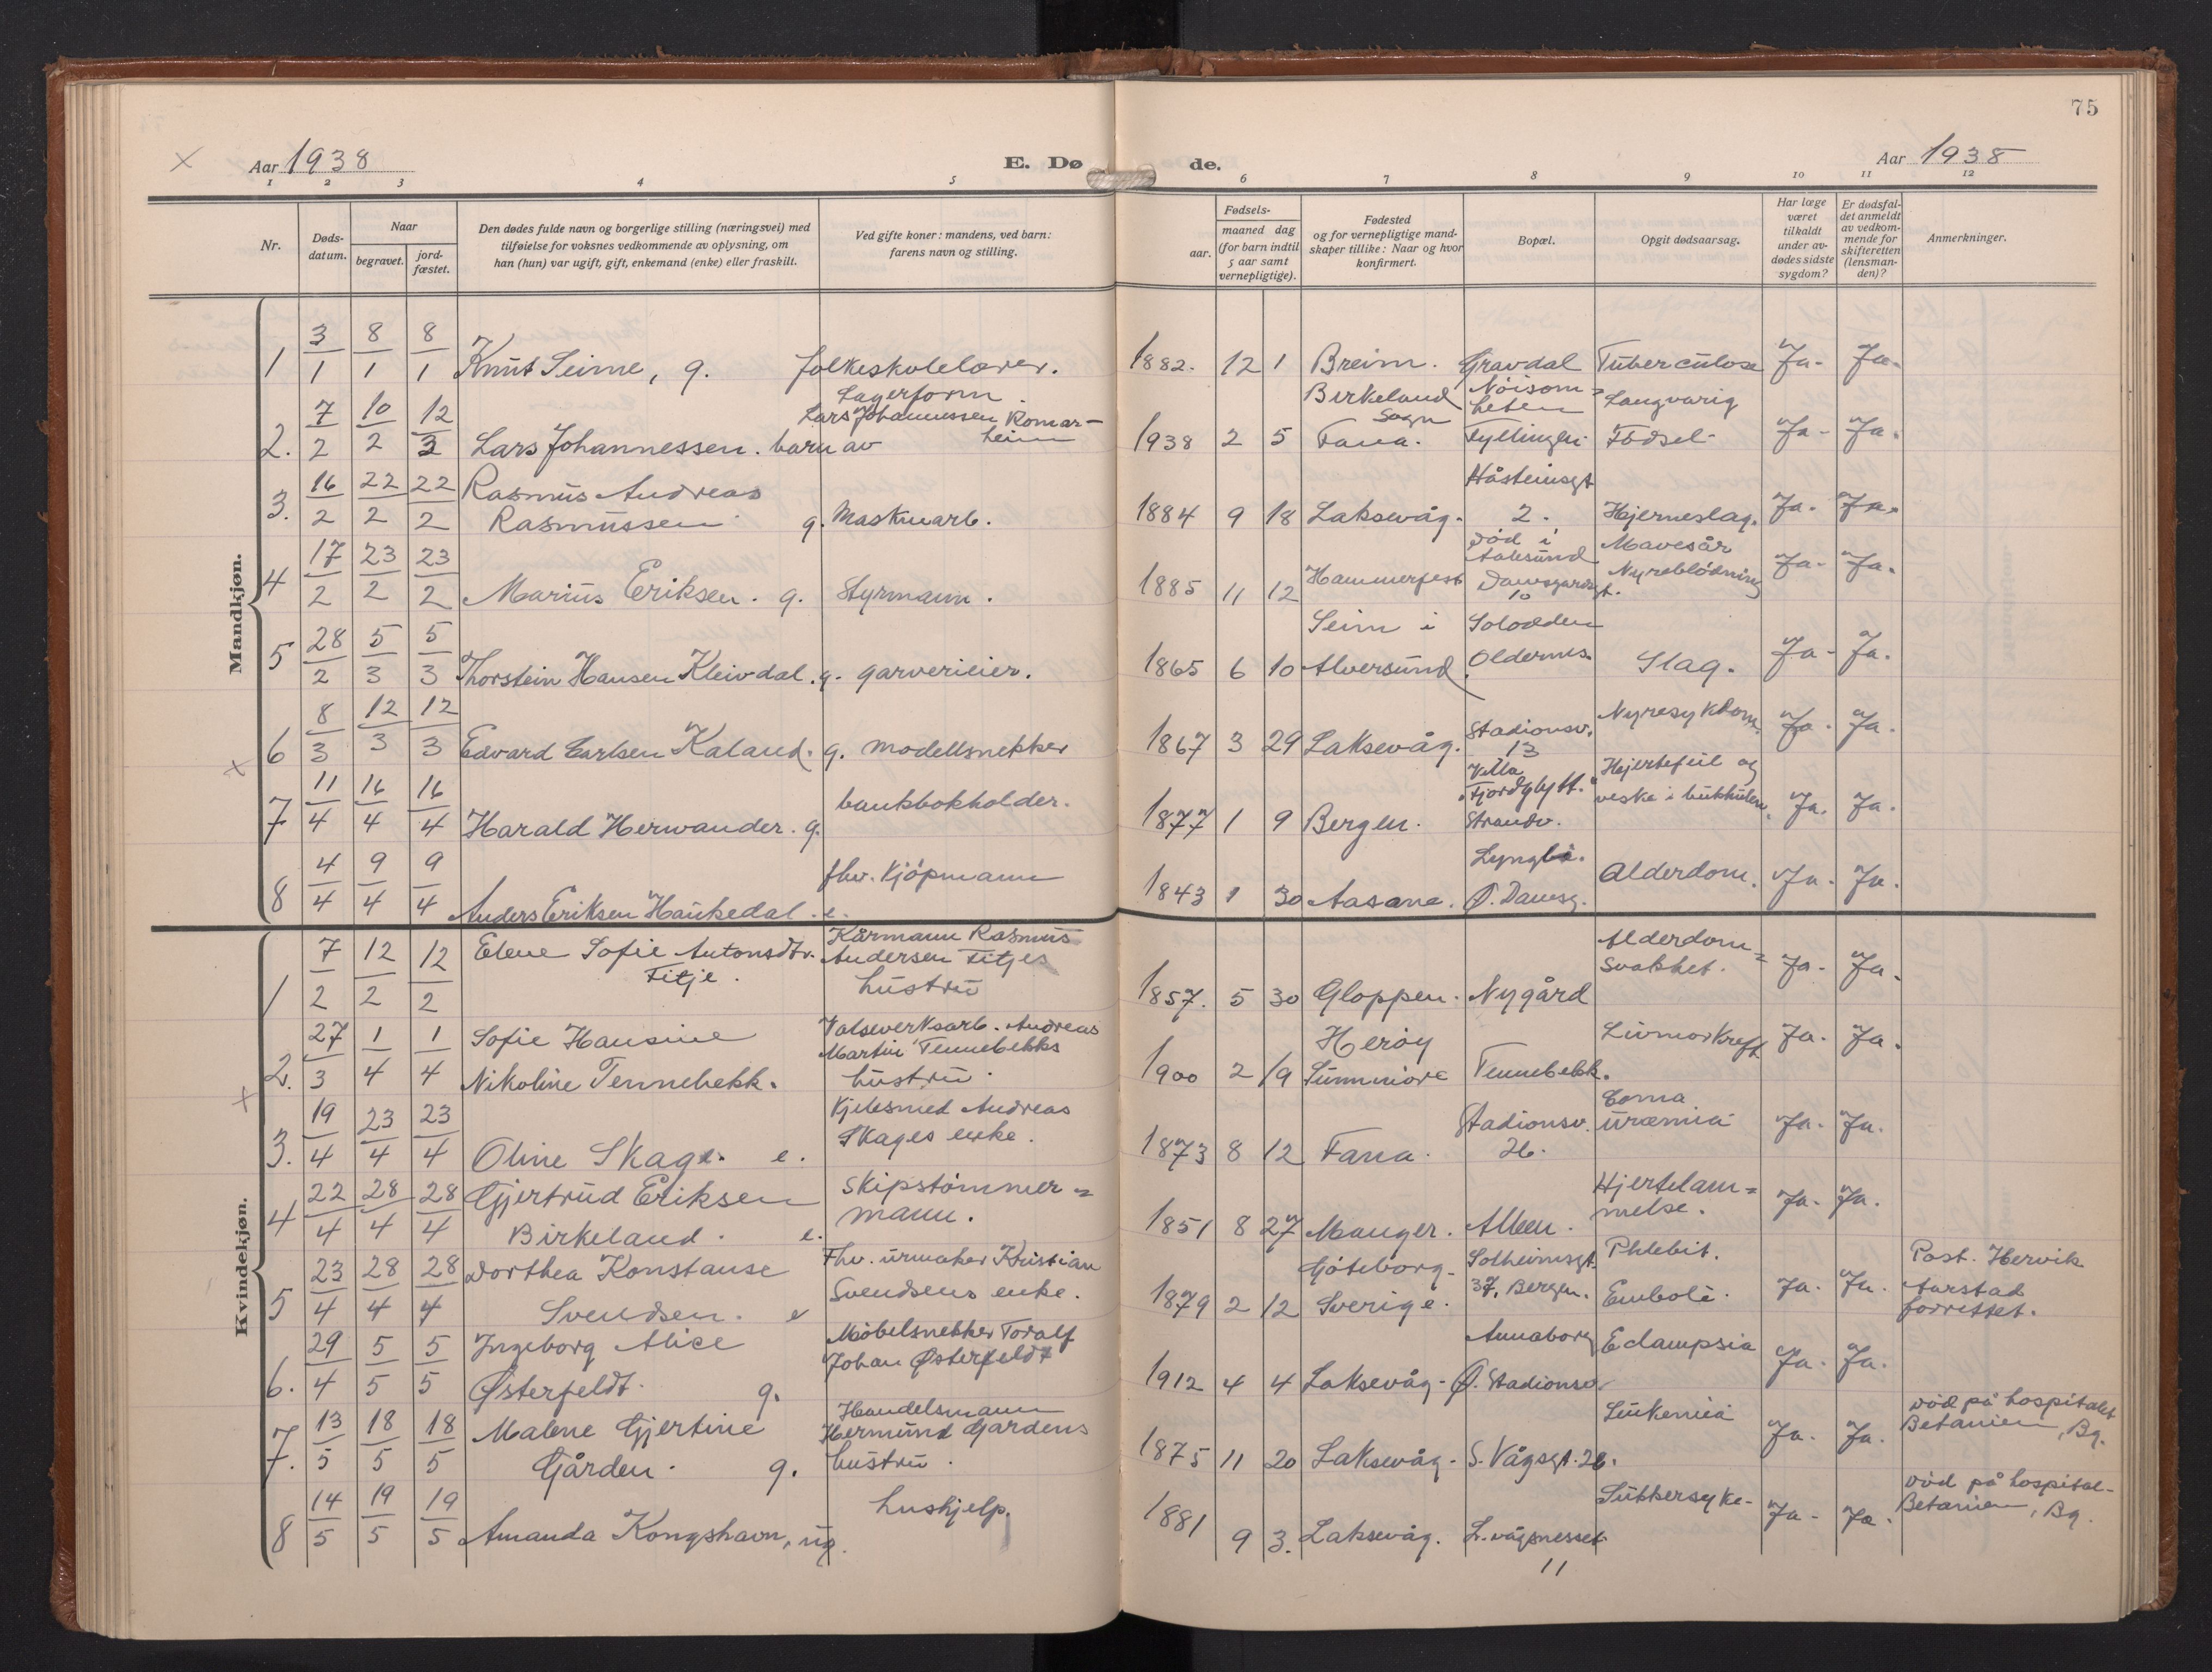 75
Aar 1938
E. Døde.
Aar 1938
1 2 3 4 5 6 7 8 9 10 11 12
Nr.
Døds-datum.
Naar
begravet.
jord-fæstet.
Den dødes fulde navn og borgerlige stilling (næringsvei) med
tilføielse for voksnes vedkommende av oplysning, om
han (hun) var ugift, gift, enkemand (enke) eller fraskilt.
Ved gifte koner: mandens, ved barn:
farens navn og stilling.
Fødsels-
aar.
maaned dag
(for barn indtil
5 aar samt
vernepligtige).
Fødested
og for vernepligtige mand-
skaper tillike: Naar og hvor
konfirmert.
Bopæl.
Opgit dødsaarsag.
Har læge
været
tilkaldt
under av-
dødes sidste
sygdom?
Er dødsfal-
det anmeldt
av vedkom-
mende for
skifteretten
(lensman-
den)?
Anmerkninger.
Mandkjøn.
1 3/1 8/1 8/1 Knut Seime, g. folkeskolelærer. 1882. 12 1 Breim. Gravdal Tuberculose Ja- Ja-
2. 7/2 10/2 12/3 Lars Johannessen. barn av Lagerform. Lars Johannessen Romarheim 1938 2 5 Birkeland Sogn Fana. Nöisomheten Fyllingen. Langvarig Födsel- Ja- Ja.
3. 16/2 22/2 22/2 Rasmus Andreas Rasmussen g. Maskinarb. 1884 9 18 Laksevåg. Håsteinsgt 2. Hjerneslag. Ja- Ja-
4 17/2 23/2 23/2 Marius Eriksen. g. Styrmann. 1885 11 12 Hammerfest död i Aalesund Damsgårdsgt. 10 Mavesår Nyreblödning Ja- Ja.
5 28/2 5/3 5/3 Thorstein Hansen Kleivdal. g. garverieier. 1865 6 10 Seim i Alversund. Solodden Oldernes. Slag. Ja- Ja.
6 8/3 12/3 12/3 Edvard Carlsen Kaland. g. modellsnekker 1867 3 29 Laksevåg. Stadionsv. 13 Nyresykdom. Ja- Ja.
7 11/4 16/4 16/4 Harald Herwander. g. bankbokholder. 1877 1 9 Bergen. Villa "Fjordglytt." Strandv. Hjertefeil og veske i bukhulen. Ja. Ja.
8 4/4 9/4 9/4 Anders Eriksen Haukedal. e. fhv. Kjöpmann 1843 1 30 Aasane. Lyngbö. Ø. Damsg. Alderdom. Ja- Ja.
Kvindekjøn.
1 7/2 12/2 12/2 Elene Sofie Antonsdtr. Fitje. Kårmann Rasmus Andersen Fitjes hustru 1857. 5 30 Gloppen. Nygård Alderdomsvakhet. Ja- Ja-
2. 27/3 1/4 1/4 Sofie Hansine Nikoline Tennebekk. Valseverksarb. Andreas Martin Tennebekks hustru. 1900 2 19 Heröy Sunnmöre Tennebekk. Livmorkreft Ja. Ja.
3. 19/4 23/4 23/4 Oline Skage. e. Kjelesmed Andreas Skages enke. 1873 8 12 Fana. Stadionsv. 26. Coma uræmia Ja- Ja.
4 22/4 28/4 28/4 Gjertrud Eriksen Birkeland. e. Skipstömmermann. 1851 8 27 Manger. Alleen. Hjertelammelse. Ja- Ja.
5 23/4 28/4 28/4 Dorthea Konstanse Svendsen. e Fhv. urmaker Kristian Svendsens enke. 1879 2 12 Göteborg- Sverige. Solheimsgt. 37, Bergen. Phlebit. Emboli. Ja. Ja. Past. Hervik Aarstad forrettet.
6. 29/4 5/5 5/5 Ingeborg Alice Østerfeldt. g. Möbelsnekker Toralf Johan Østerfeldt 1912 4 4 Laksevåg- Annaborg Ø. Stadionsv. Eclampsia Ja- Ja.
7. 13/5 18/5 18/5 Malene Gjertine Gården. g. Handelsmann Hermund Gardens hustru. 1875 11 20 Laksevåg- S. Vågsgt. 26. Leukemia Ja. Ja. död på hospitalet Betanien, Bg.
8 14/5 19/5 19/5 Amanda Kongshavn, ug. hushjelp. 1881 9 3. Laksevåg. L.vågsnesset 11 Sukkersyke- Ja- Ja. död på hospital- Betanien, Bg.